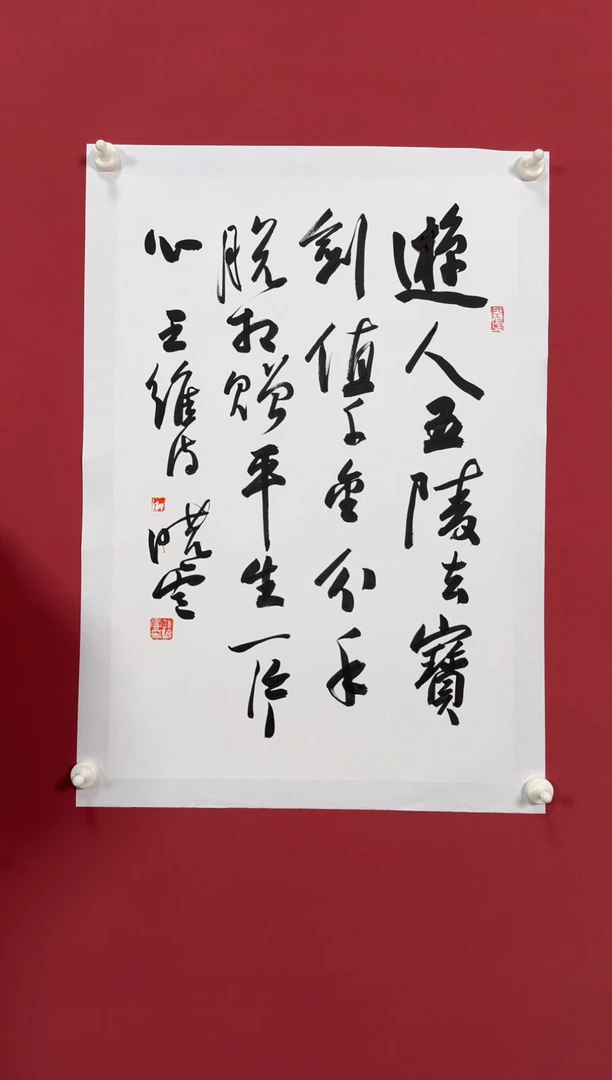 遊人五陵去寶
劍值千金分手
脱相赠平生一片
心 王維诗 晓雲